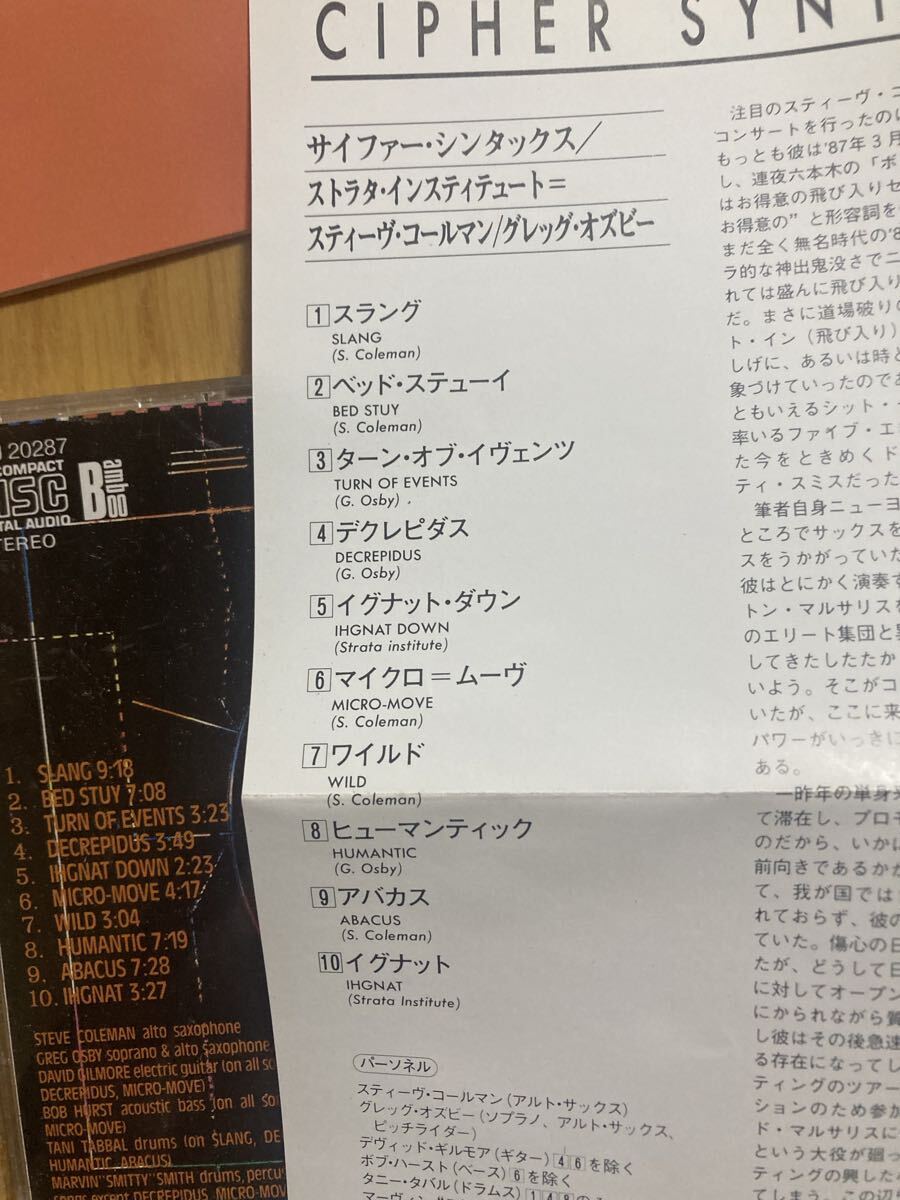 CIPHER SYNT
サイファー・シンタックス/
ストラタ・インスティテュート＝
スティーヴ・コールマン/グレッグ・オズビー
1 スラング
SLANG
(S. Coleman)
2 ベッド・ステューイ
BED STUY
(S. Coleman)
3 ターン・オブ・イヴェンツ
TURN OF EVENTS
(G. Osby)
4 デクレピダス
DECREPIDUS
(G. Osby)
5 イグナット・ダウン
IHGNAT DOWN
(Strata institute)
6 マイクロ＝ムーヴ
MICRO-MOVE
(S. Coleman)
7 ワイルド
WILD
(S. Coleman)
8 ヒューマンティック
HUMANTIC
(G. Osby)
9 アバカス
ABACUS
(S. Coleman)
10 イグナット
IHGNAT
(Strata Institute)
パーソネル
スティーヴ・コールマン(アルト・サックス)
グレッグ・オズビー(ソプラノ、アルト・サックス、
ピッチライダー)
デヴィッド・ギルモア(ギター) 4 6 を除く
ボブ・ハースト(ベース) 6 を除く
タニー・タバル(ドラムス) 1 4 8
注目のスティーヴ・コ
コンサートを行ったのに
もっとも彼は'87年3月
し、連夜六本木の「ボ
はお得意の飛び入りセ
お得意の”と形容詞を
まだ全く無名時代の'8
ラ的な神出鬼没さでニ
れては盛んに飛び入り
だ。まさに道場破りの
ト・イン(飛び入り)
しげに、あるいは時と
象づけていったのであ
ともいえるシット・
率いるファイブ・エ
た今をときめくド
ティ・スミスだった
筆者自身ニューヨ
ところでサックスを
スをうかがっていた
彼はとにかく演奏す
トン・マルサリスを
のエリート集団と
してきたしたたか
いよう。そこがコ
いたが、ここに来
パワーがいっきに
ある。
一昨年の単身
て滞在し、プロモ
のだから、いかに
前向きであるか
て、我が国では
れておらず、彼の
ていた。傷心の日
たが、どうして日
に対してオープン
にかられながら質
し彼はその後急速
る存在になってし
ティングのツアー
ションのため参加
ド・マルサリスに
という大役が廻っ
ティングの興した
てしまう。この辺
20287
COMPACT
DISC
DIGITAL AUDIO
Bamboo
STEREO
1. SLANG 9:18
2. BED STUY 7:08
3. TURN OF EVENTS 3:23
4. DECREPIDUS 3:49
5. IHGNAT DOWN 2:23
6. MICRO-MOVE 4:17
7. WILD 3:04
8. HUMANTIC 7:19
9. ABACUS 7:28
10. IHGNAT 3:27
STEVE COLEMAN alto saxophone
GREG OSBY soprano & alto saxophone
DAVID GILMORE electric guitar (on all
DECREPIDUS, MICRO-MOVE)
BOB HURST acoustic bass (on all
MICRO-MOVE)
TANI TABBAL drums (on SLANG, DE
HUMANTIC, ABACUS)
MARVIN "SMITTY" SMITH drums, percus
songs except DECREPIDUS, MICRO-MOV